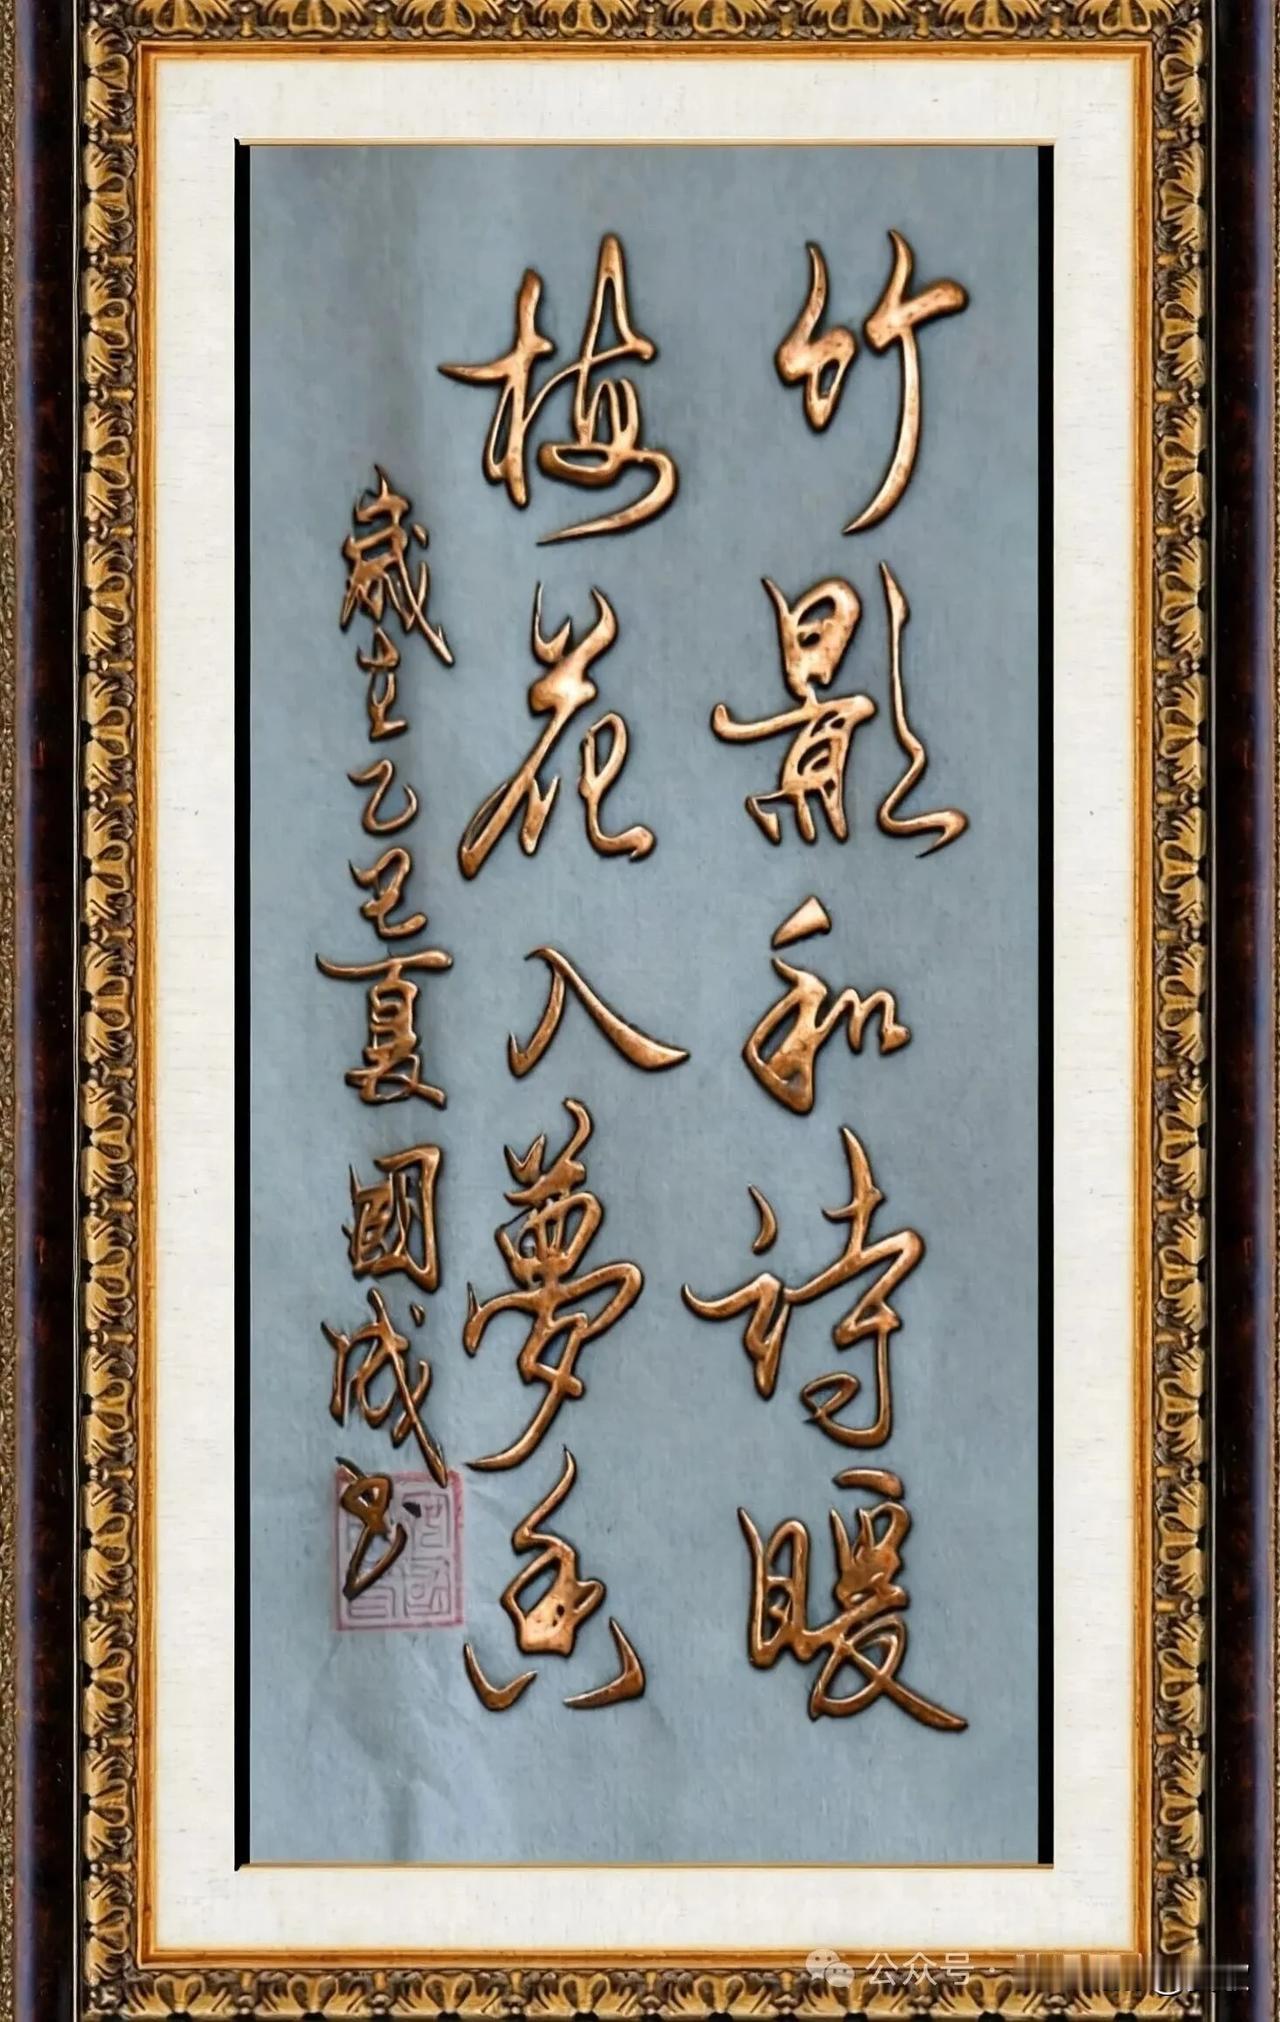 竹影和詩暖
梅花入夢香
歲在乙巳夏 國成书
公众号 ·